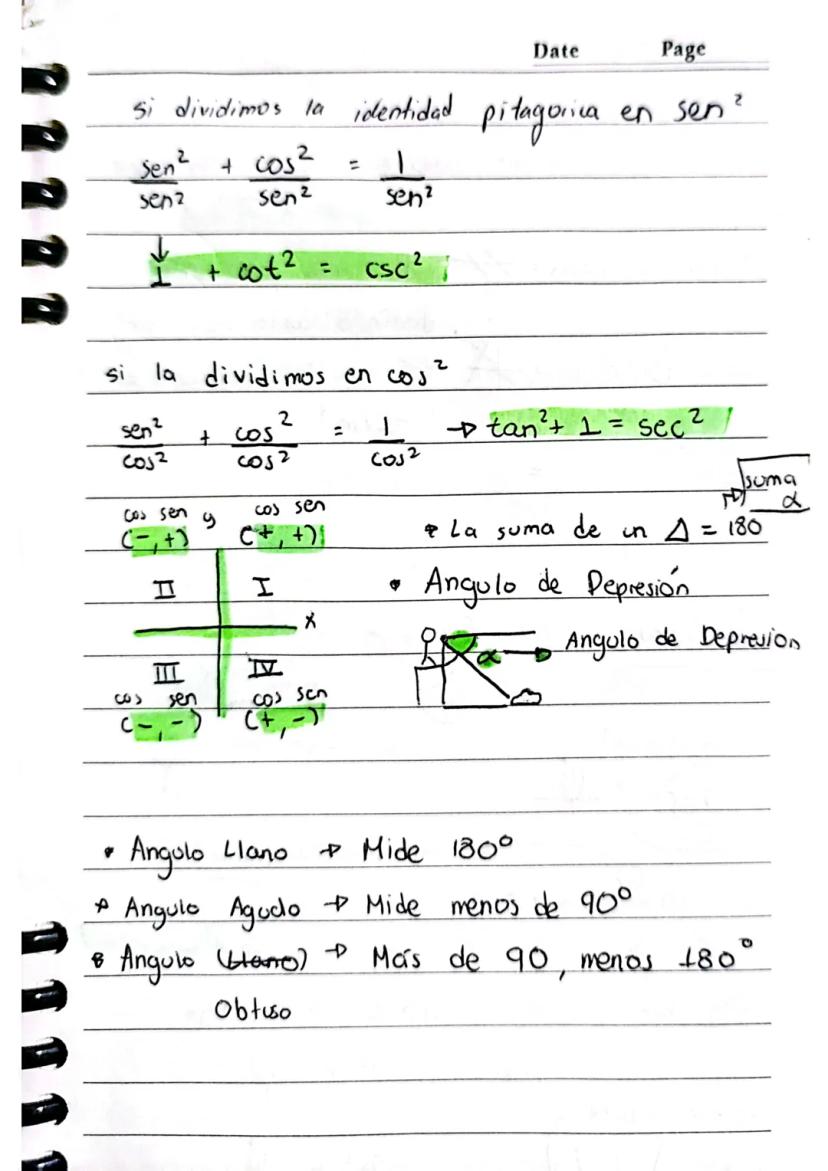 Date Page
si dividimos la identidad pitagorica en sen²
sen²/sen² + cos²/sen² = 1/sen²
↓
1 + cot² = csc²
si la dividimos en cos²
sen²/cos² + cos²/cos² = 1/cos² → tan² + 1 = sec²
suma
α
cos sen y cos sen
(-,+) (+,+)
• La suma de un Δ = 180
II I
• Angulo de Depresión
x
α → Angulo de Depresion
III IV
cos sen cos sen
(-,-) (+,-)
• Angulo Llano → Mide 180°
• Angulo Agudo → Mide menos de 90°
• Angulo (Llano) → Más de 90, menos 180°
Obtuso